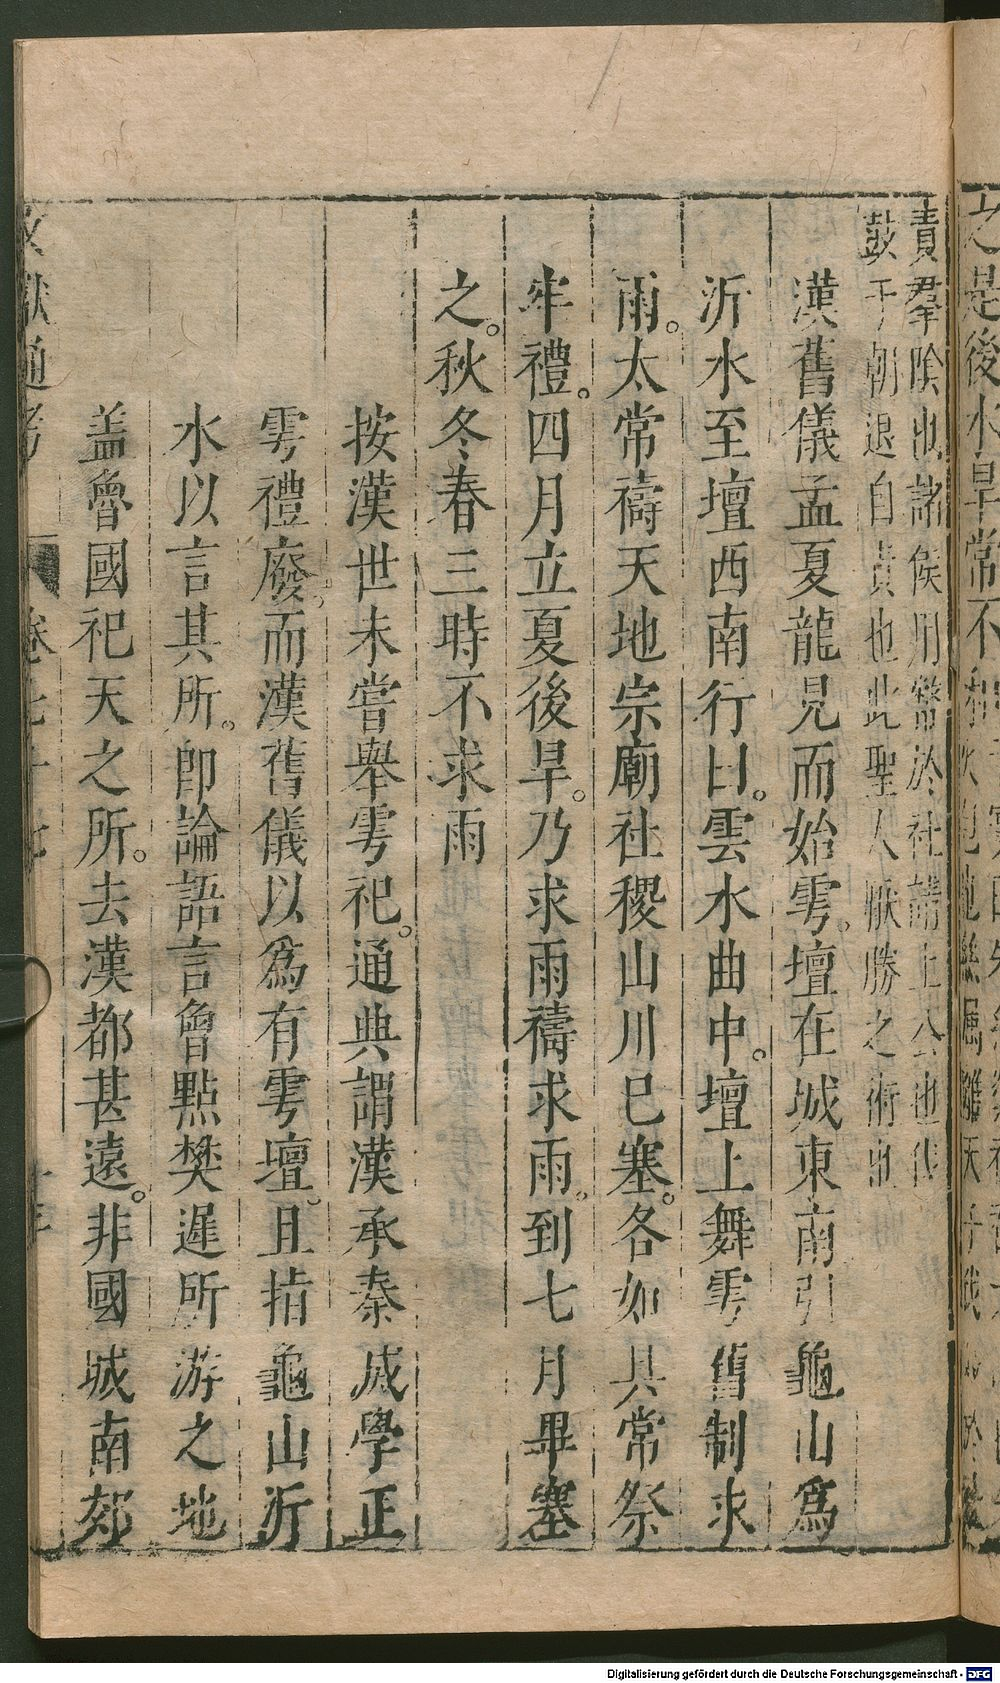 責羣陰也諸侯用幣於社請上公也伐
鼓于朝退自責也此聖人厭勝之術也
漢舊儀孟夏龍見而始雩壇在城東南引龜山爲
沂水至壇西南行曰。雲水曲中。壇上舞雩舊制求
雨。太常禱天地宗廟社稷山川巳塞。各如其常祭
牢禮。四月立夏後旱。乃求雨禱求雨。到七月畢塞
之。秋冬春三時不求雨
按漢世未嘗舉雩祀。通典謂漢承秦滅學正
雩禮廢。而漢舊儀以爲有雩壇。且指龜山沂
水以言其所。卽論語言曾點樊遲所游之地
盖魯國祀天之所。去漢都甚遠。非國城南郊
文獻通考
卷七十七
之是後水旱常不和
Digitalisierung gefördert durch die Deutsche Forschungsgemeinschaft - DFG